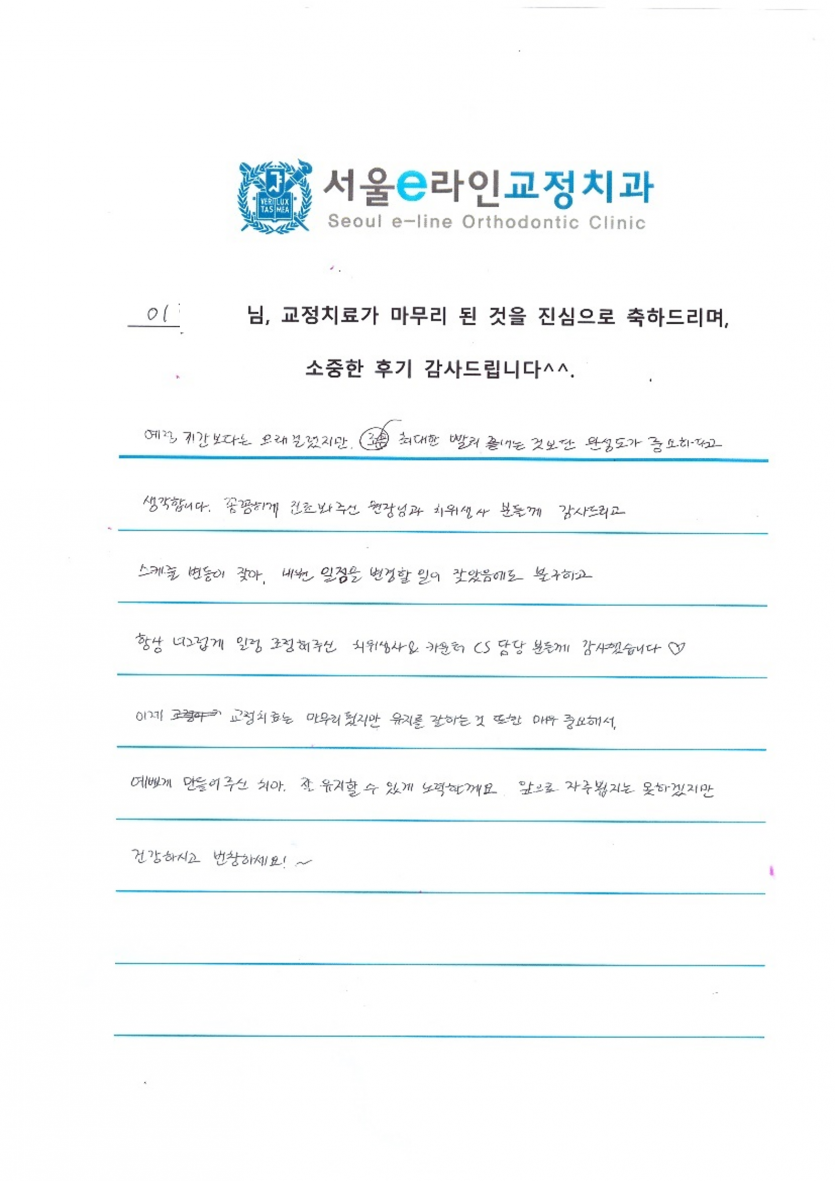 VERI LUX
TAS MEA
서울e라인교정치과
Seoul e-line Orthodontic Clinic
이 님, 교정치료가 마무리 된 것을 진심으로 축하드리며,
소중한 후기 감사드립니다^^.
예정 기간보다는 오래 걸렸지만, 최대한 빨리 끝내는 것보단 완성도가 중요하다고
생각합니다. 꼼꼼하게 진료봐주신 원장님과 치위생사 분들께 감사드리고
스케줄 변동이 잦아, 내원 일정을 변경할 일이 잦았음에도 불구하고
항상 너그럽게 일정 조정해주신 치위생사 & 카운터 CS 담당 분들께 감사했습니다 ♡
이제 교정치료는 마무리 됐지만 유지를 잘하는 것 또한 매우 중요해서,
예쁘게 만들어주신 치아. 잘 유지할 수 있게 노력할게요. 앞으로 자주 뵙지는 못하겠지만
건강하시고 번창하세요! ~